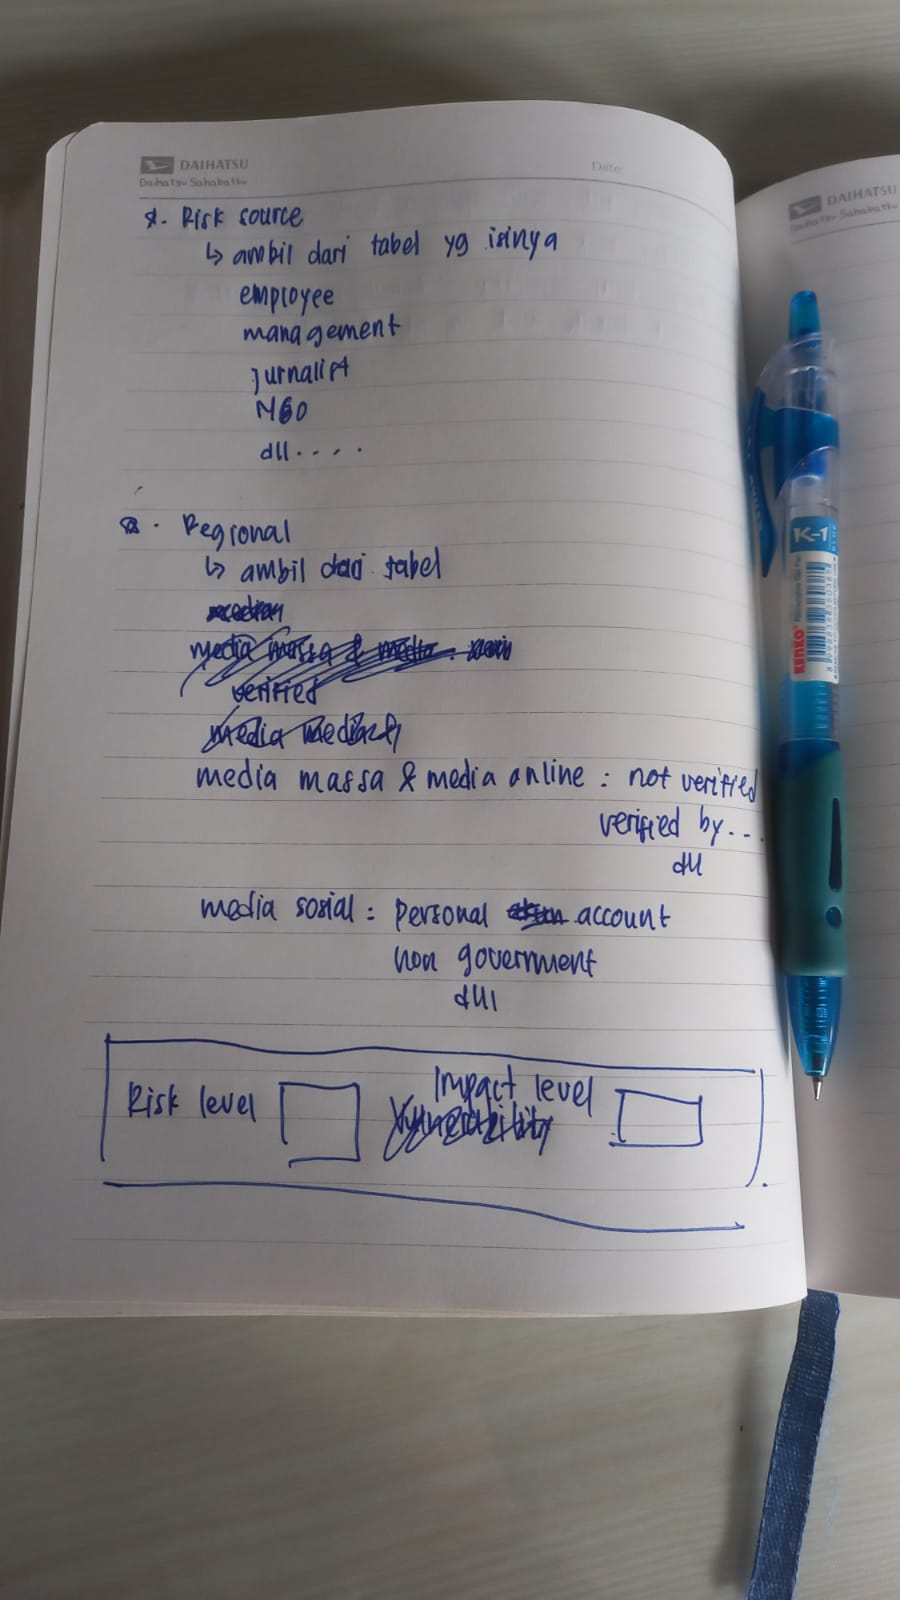 DAIHATSU
Daihatsu Sahabatku
Date:
Risk source
↳ ambil dari tabel yg isinya
employee
management
jurnalist
NGO
dll....
Regional
↳ ambil dari tabel
verified
media massa & media online : not verified
verified by...
dll
media sosial : personal account
non government
dll
Risk level
Impact level
DAIHATSU
Daihatsu Sahabatku
K-1
KENKO